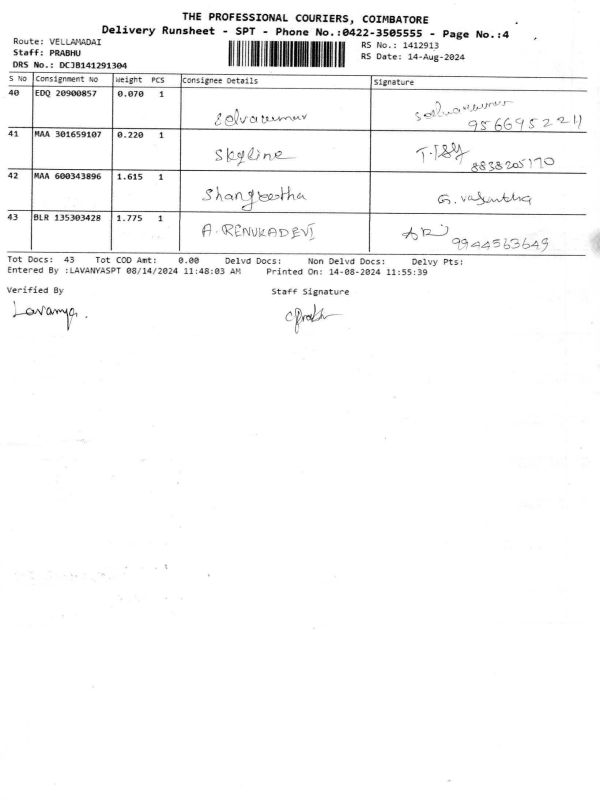 THE PROFESSIONAL COURIERS, COIMBATORE
Delivery Runsheet - SPT - Phone No.:0422-3505555 - Page No.:4
Route: VELLAMADAI
RS No.: 1412913
Staff: PRABHU
RS Date: 14-Aug-2024
DRS No.: DCJB141291304
S No Consignment No Weight PCS Consignee Details Signature
40 EDQ 20900857 0.070 1 Selvakumar Selvakumar
9566952211
41 MAA 301659107 0.220 1 Skyline
8838205170
42 MAA 600343896 1.615 1 Shangeetha G. Vasantha
43 BLR 135303428 1.775 1 A. RENUKADEVI
9944563649
Tot Docs: 43 Tot COD Amt: 0.00 Delvd Docs: Non Delvd Docs: Delvy Pts:
Entered By :LAVANYASPT 08/14/2024 11:48:03 AM Printed On: 14-08-2024 11:55:39
Verified By Staff Signature
Lavanya.